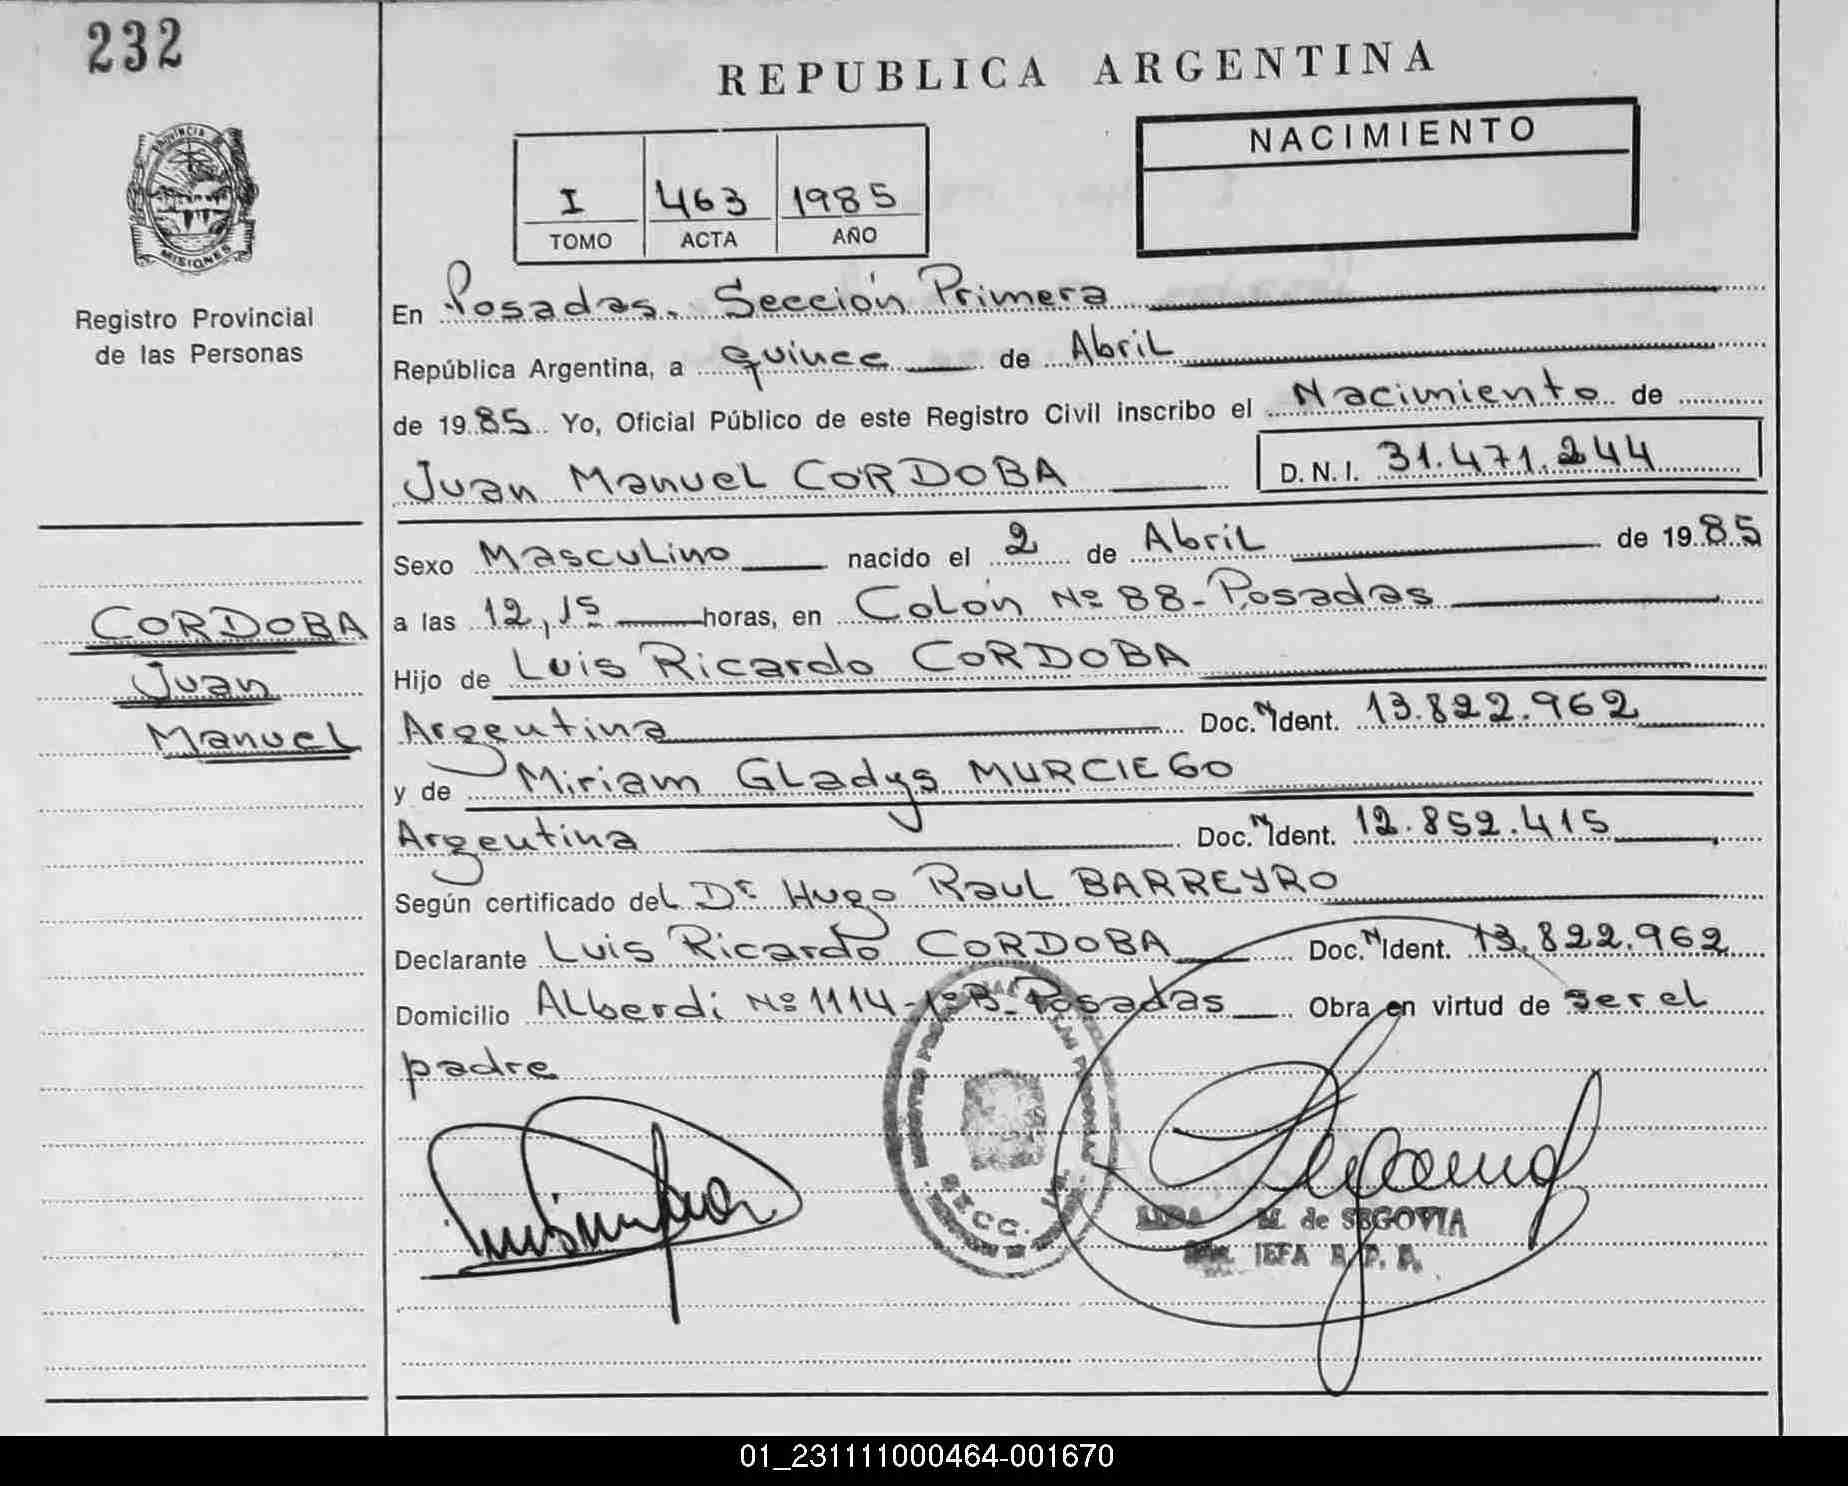 232
REPUBLICA ARGENTINA
PROVINCIA
MISIONES
Registro Provincial
de las Personas
I 463 1985
TOMO ACTA AÑO
NACIMIENTO
En Posadas. Sección Primera
República Argentina, a quince de Abril
de 1985 Yo, Oficial Público de este Registro Civil inscribo el Nacimiento de
Juan Manuel CORDOBA D.N.I. 31.471.244
Sexo Masculino nacido el 2 de Abril de 1985
a las 12,15 horas, en Colón Nº 88-Posadas
CORDOBA
Juan
Manuel
Hijo de Luis Ricardo CORDOBA
Argentina Doc. N Ident. 13.822.962
y de Miriam Gladys MURCIEGO
Argentina Doc. N Ident. 12.852.415
Según certificado del Dr Hugo Raul BARREYRO
Declarante Luis Ricardo CORDOBA Doc. N Ident. 13.822.962
Domicilio Alberdi Nº 1114-1ºB-Posadas Obra en virtud de ser el
padre
SECC.
M. de SEGOVIA
JEFA R. P.
01_231111000464-001670